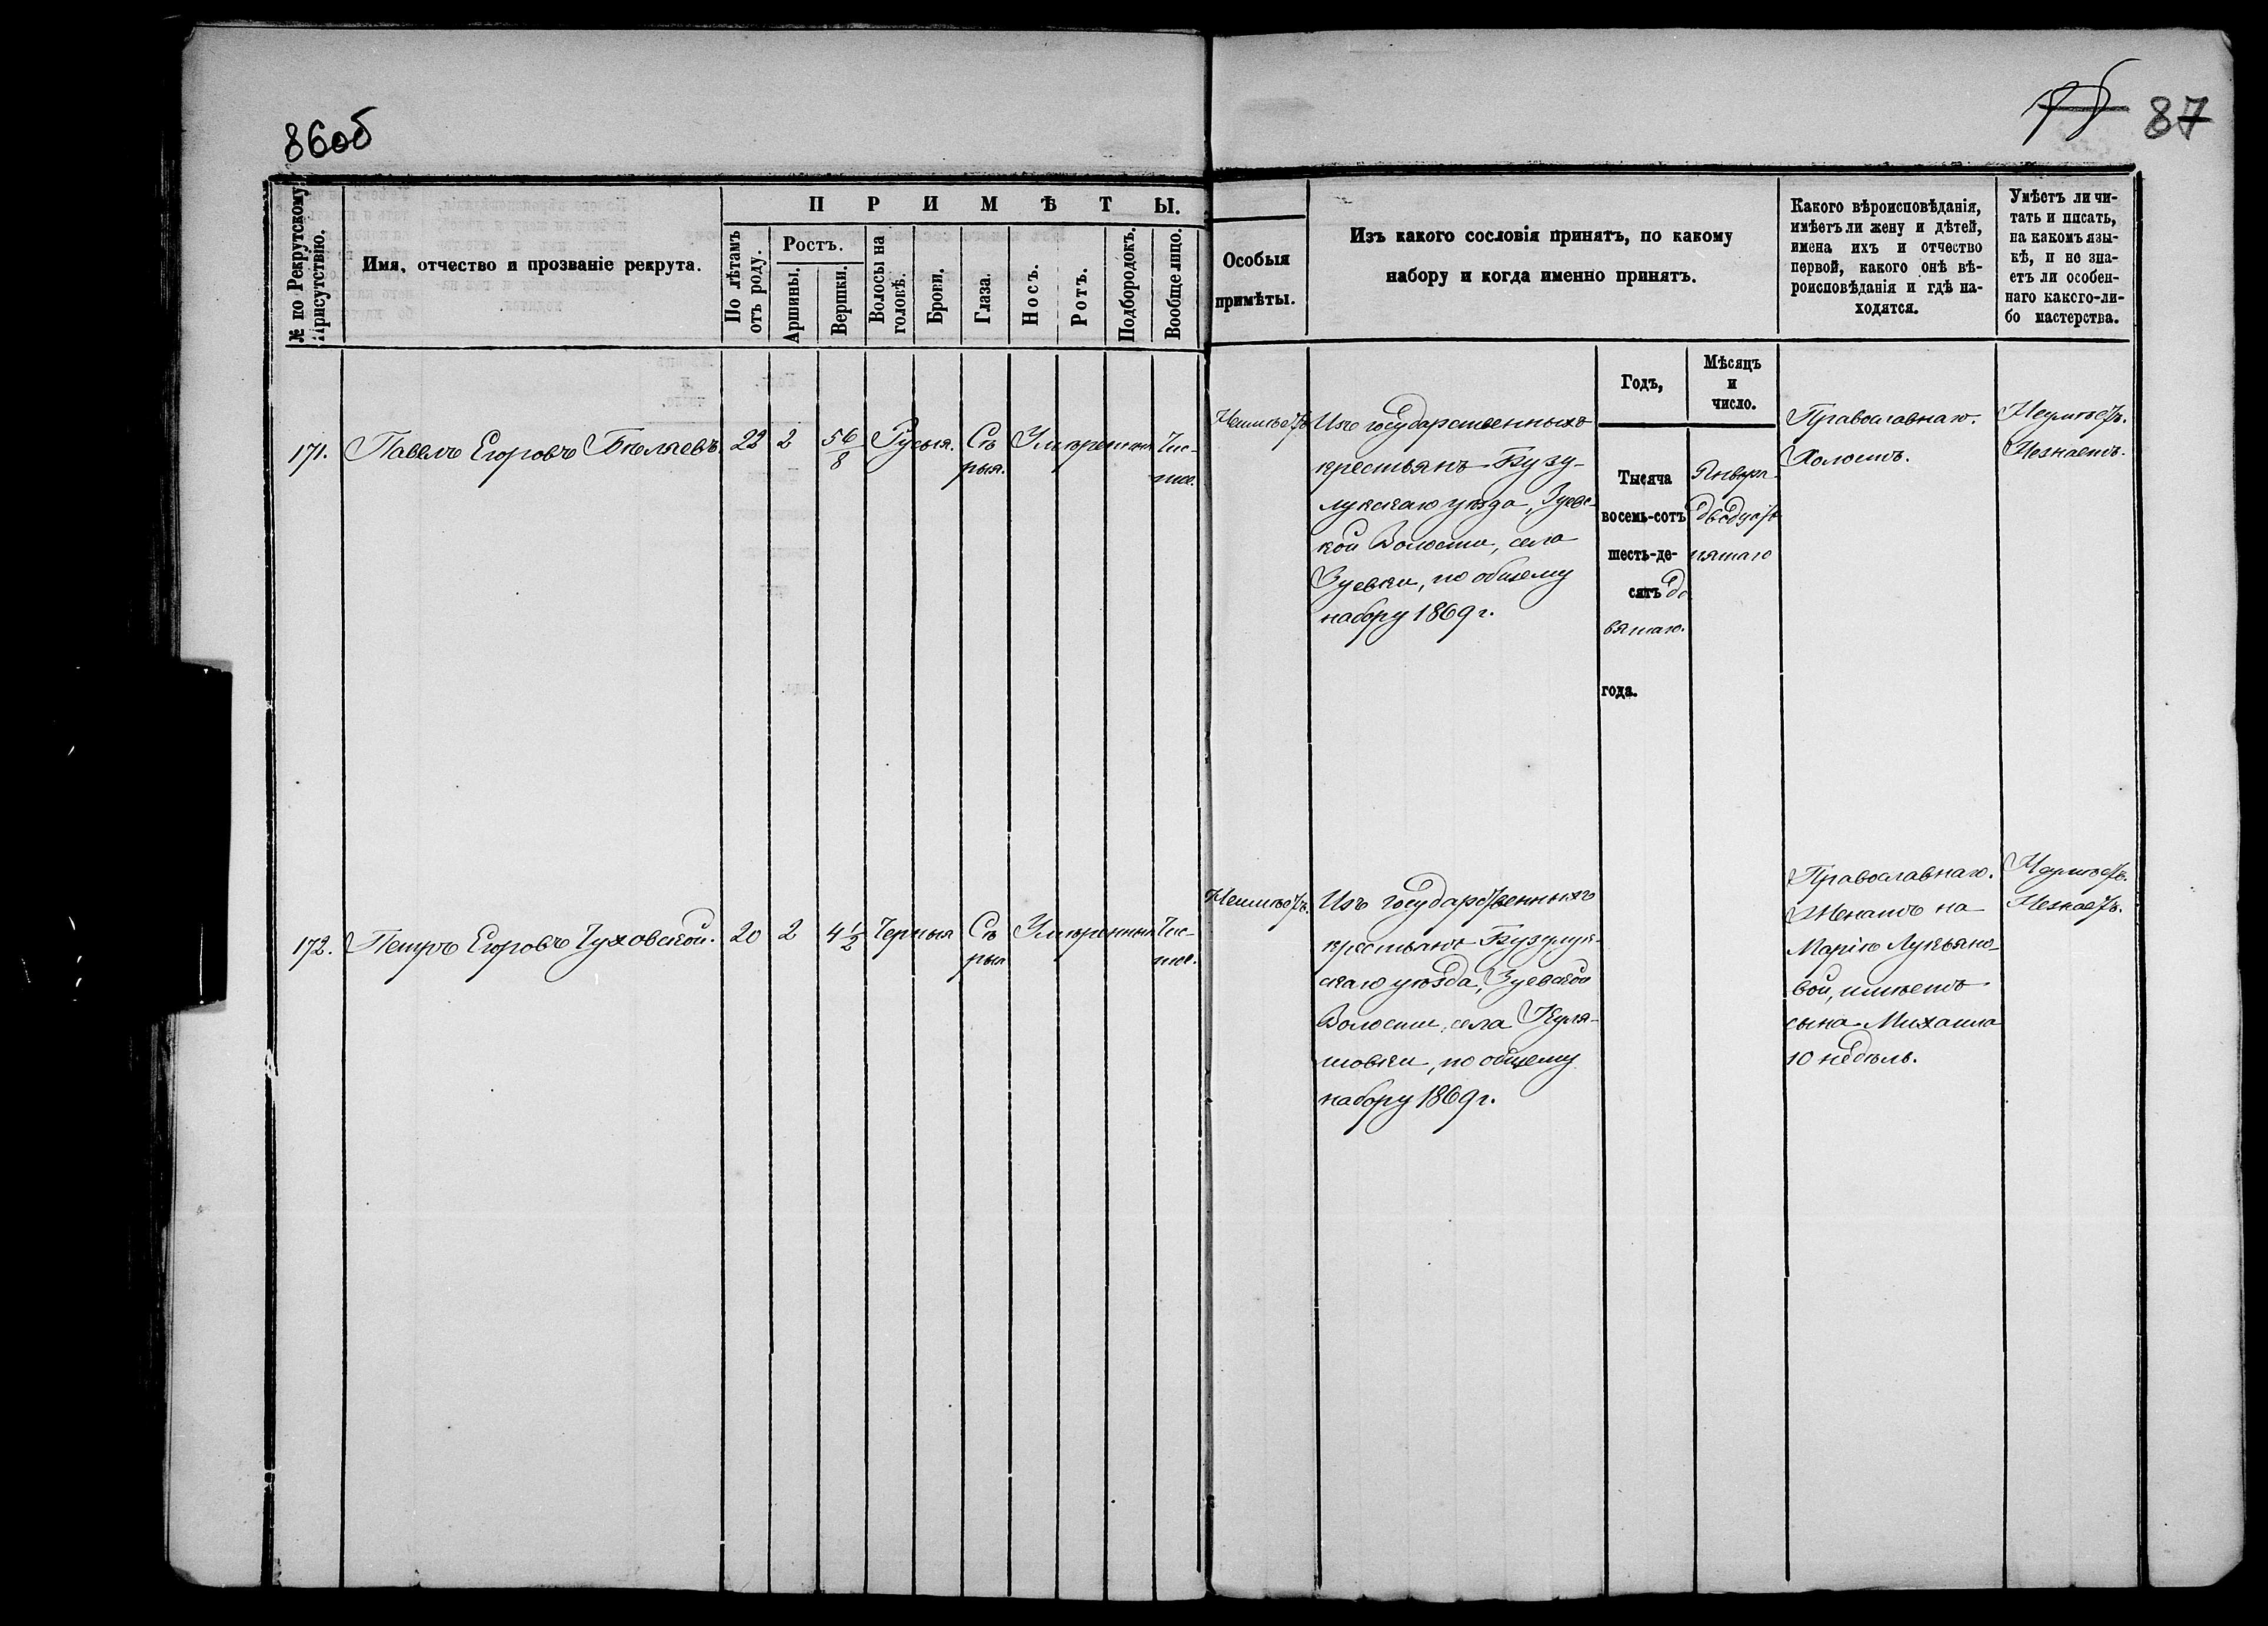 86об
87
№ по Рекрутскому Присутствію.
Имя, отчество и прозваніе рекрута.
ПРИМѢТЫ.
По лѣтамъ отъ роду.
Ростъ.
Аршины.
Вершки.
Волосы на головѣ.
Брови.
Глаза.
Носъ.
Ротъ.
Подбородокъ.
Вообще лицо.
Особыя
примѣты.
Изъ какого сословія принятъ, по какому
набору и когда именно принятъ.
Какого вѣроисповѣданія,
имѣетъ ли жену и дѣтей,
имена ихъ и отчество
первой, какого онѣ вѣ-
роисповѣданія и гдѣ на-
ходятся.
Умѣетъ ли чи-
тать и писать,
на какомъ язы-
кѣ, и не зна-
етъ ли особен-
наго какого-ли-
бо мастерства.
Годъ,
Мѣсяцъ
и
число.
171. Павелъ Егоровъ Бѣляевъ. 22 2 5 6/8 Русыя. Сѣ
рыя. Умѣренныя Чис-
тое.
Неимѣетъ
Изъ государственныхъ
крестьянъ Бузу-
лукскаго уѣзда, Зуевс-
кой Волости, села
Зуевки, по общему
набору 1869 г.
Тысяча
восемь-сотъ
шесть-де-
сятъ де
вятаго.
года.
Января
двадцать
пятаго
Православнаго.
Холостъ.
Неумѣетъ.
Незнаетъ.
172. Петръ Егоровъ Чуховской. 20 2 4 1/2 Черныя Сѣ
рыя Умѣренныя Чис-
тое.
Неимѣетъ.
Изъ государственныхъ
крестьянъ Бузулук-
скаго уѣзда, Зуевской
Волости, села Куля-
шовки, по общему
набору 1869 г.
Православнаго.
Женатъ на
Маріи Лукьяно-
вой, имѣетъ
сына Михаила
10 недѣль.
Неумѣетъ.
Незнаетъ.